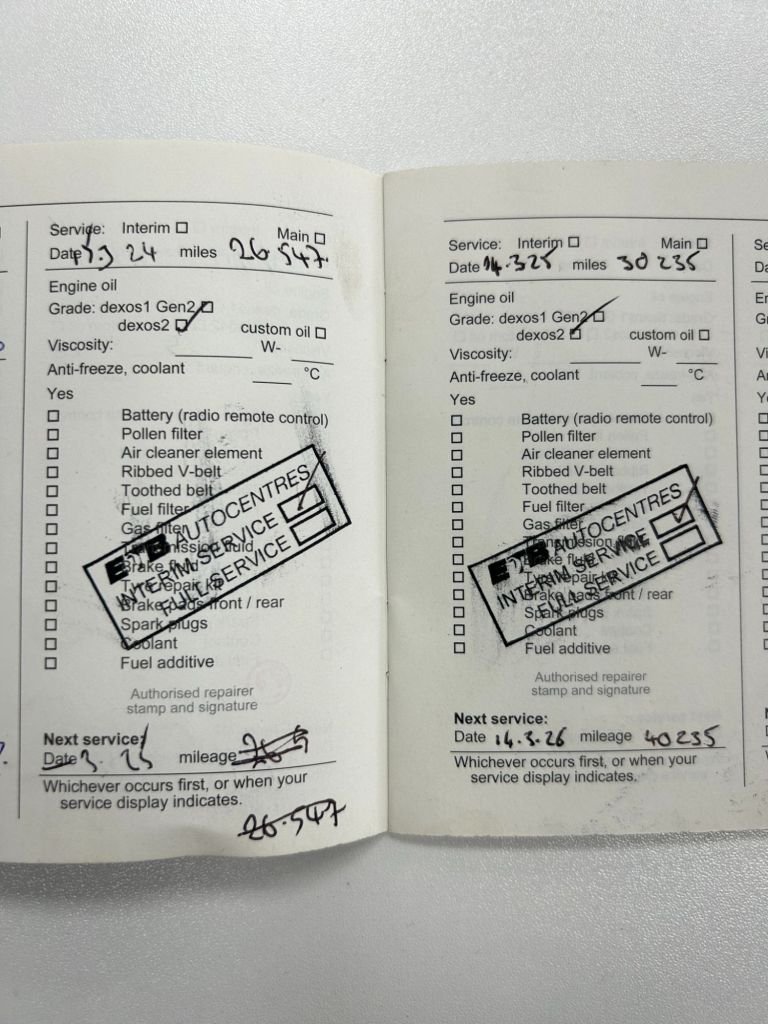 Service: Interim Main
Date 3 24 miles 26 547
Engine oil
Grade: dexos1 Gen2
dexos2 custom oil
Viscosity: W-
Anti-freeze, coolant °C
Yes
Battery (radio remote control)
Pollen filter
Air cleaner element
Ribbed V-belt
Toothed belt
Fuel filter
Gas filter
Transmission fluid
Brake fluid
Tyre repair kit
Brake pads front / rear
Spark plugs
Coolant
Fuel additive
AUTOCENTRES
INTERIM SERVICE
FULL SERVICE
Authorised repairer
stamp and signature
Next service:
Date 3. 25 mileage
Whichever occurs first, or when your
service display indicates.
26.547
Service: Interim Main
Date 14.325 miles 30 235
Engine oil
Grade: dexos1 Gen2
dexos2 custom oil
Viscosity: W-
Anti-freeze, coolant °C
Yes
Battery (radio remote control)
Pollen filter
Air cleaner element
Ribbed V-belt
Toothed belt
Fuel filter
Gas filter
Transmission fluid
Brake fluid
Tyre repair kit
Brake pads front / rear
Spark plugs
Coolant
Fuel additive
AUTOCENTRES
INTERIM SERVICE
FULL SERVICE
Authorised repairer
stamp and signature
Next service:
Date 14.3.26 mileage 40235
Whichever occurs first, or when your
service display indicates.